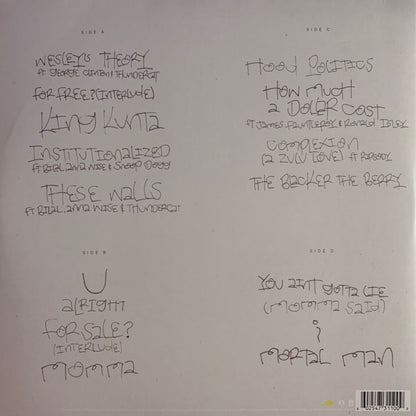 SIDE A
WESLEY'S THEORY
FT. GEORGE CLINTON & THUNDERCAT
FOR FREE? (INTERLUDE)
KING KUNTA
INSTITUTIONALIZED
FT. BILAL, ANNA WISE & SNOOP DOGG
THESE WALLS
FT. BILAL, ANNA WISE & THUNDERCAT
SIDE B
U
ALRIGHT
FOR SALE?
(INTERLUDE)
MOMMA
SIDE C
HOOD POLITICS
HOW MUCH
A DOLLAR COST
FT. JAMES FAUNTLEROY & RONALD ISLEY
COMPLEXION
(A ZULU LOVE) FT. RAPSODY
THE BLACKER THE BERRY
SIDE D
YOU AINT GOTTA LIE
(MOMMA SAID)
i
MORTAL MAN